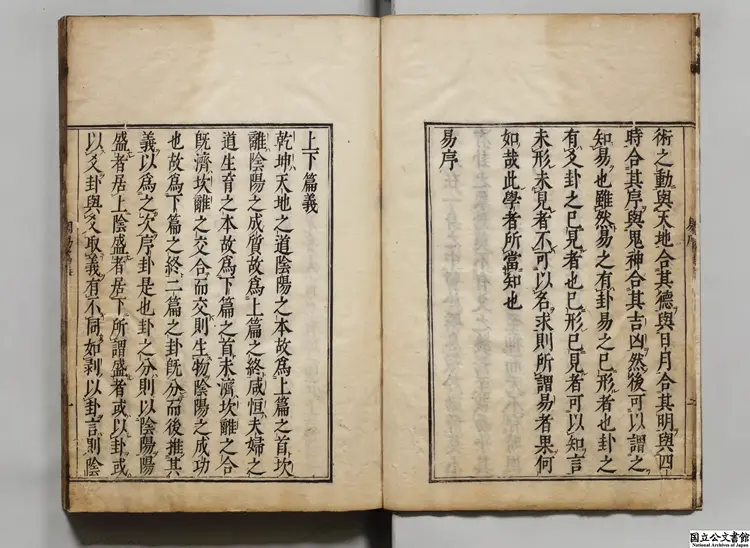 術之動與天地合其德與日月合其明與四
時合其序與鬼神合其吉凶然後可以謂之
知易也雖然易之有卦易之已形者也卦之
有爻卦之已見者也已形已見者可以知言
未形未見者不可以名求則所謂易者果何
如哉此學者所當知也
易序
上下篇義
乾坤天地之道陰陽之本故爲上篇之首坎
離陰陽之成質故爲上篇之終咸恒夫婦之
道生育之本故爲下篇之首未濟坎離之合
旣濟坎離之交合而交則生物陰陽之成功
也故爲下篇之終二篇之卦旣分而後推其
義以爲之次序卦是也卦之分則以陰陽陽
盛者居上陰盛者居下所謂盛者或以卦或
以爻卦與爻取義有不同如剥以卦言則陰
国立公文書館
National Archives of Japan